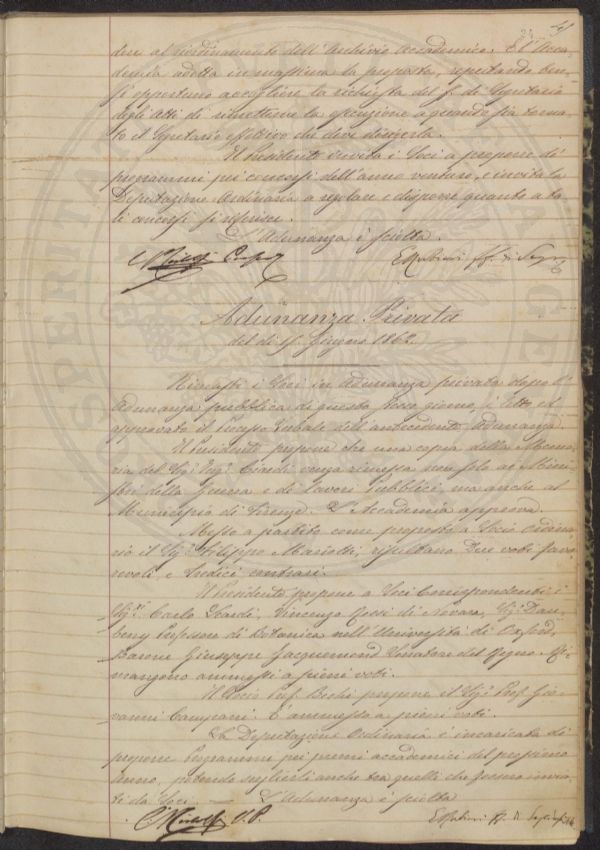 dere al riordinamento dell'Archivio Accademico. E l'Acca-
demia adotta in massima la proposta, reputando ben-
sì opportuno accogliere la richiesta del f. di Segretario
degli Atti di rimetterne la esecuzione a quando sia torna-
to il Segretario effettivo che deve disporla.
Il Presidente invita i Soci a proporre dei
programmi pei concorsi dell'anno venturo, e invita la
Deputazione Ordinaria a regolare e disporre quanto a ta-
li concorsi si riferisce.
L'Adunanza è sciolta.
ff. di Segr.
Adunanza Privata
del dì Giugno 1862.
Rimasti i Soci in Adunanza privata dopo l'
Adunanza pubblica di questo stesso giorno, è letto ed
approvato il Processo Verbale dell'antecedente Adunanza.
Il Presidente propone che una copia della Memo-
ria del Sig. Ing. venga rimessa non solo ai Mini-
stri della Guerra e di Lavori Pubblici, ma anche al
Municipio di Firenze. L'Accademia approva.
Messo a partito come proposto a Socio Ordina-
rio il Sig. Filippo Mariotti, risultano Due voti favo-
revoli, e tredici contrari.
Il Presidente propone a Soci Corrispondenti i
Sig.ri Carlo Vincenzo Rossi di Novara, Sig. Dau-
beny Professore di Botanica nell'Università di Oxford,
Barone Giuseppe Jacquemoud Senatore del Regno. Ri-
mangono ammessi a pieni voti.
Il Socio Prof. Bechi propone il Sig. Prof. Gio-
vanni Campani. È ammesso a pieni voti.
La Deputazione Ordinaria è incaricata di
proporre Programmi pei premi accademici del prossimo
Anno, potendo sceglierli anche tra quelli che fossero invia-
ti da Soci. — L'Adunanza è sciolta
V. P. ff. di Segr.